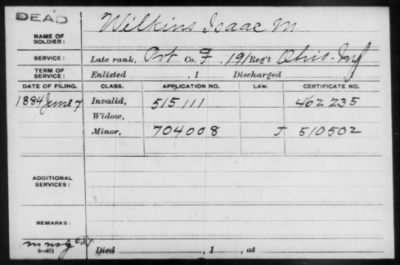 DEAD
NAME OF SOLDIER: Wilkins Isaac M
SERVICE: Late rank, Pvt Co. F, 191 Reg't Ohio Inf
TERM OF SERVICE: Enlisted , 1 Discharged
DATE OF FILING. CLASS. APPLICATION NO. LAW. CERTIFICATE NO.
1884 June 7 Invalid, 515111 462235
Widow,
Minor, 704008 J 510502
ADDITIONAL SERVICES:
REMARKS:
Died , 1 , at